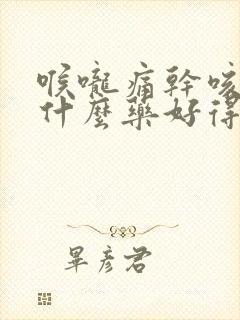 喉嚨痛幹咳
什麼藥好得
畢彥君